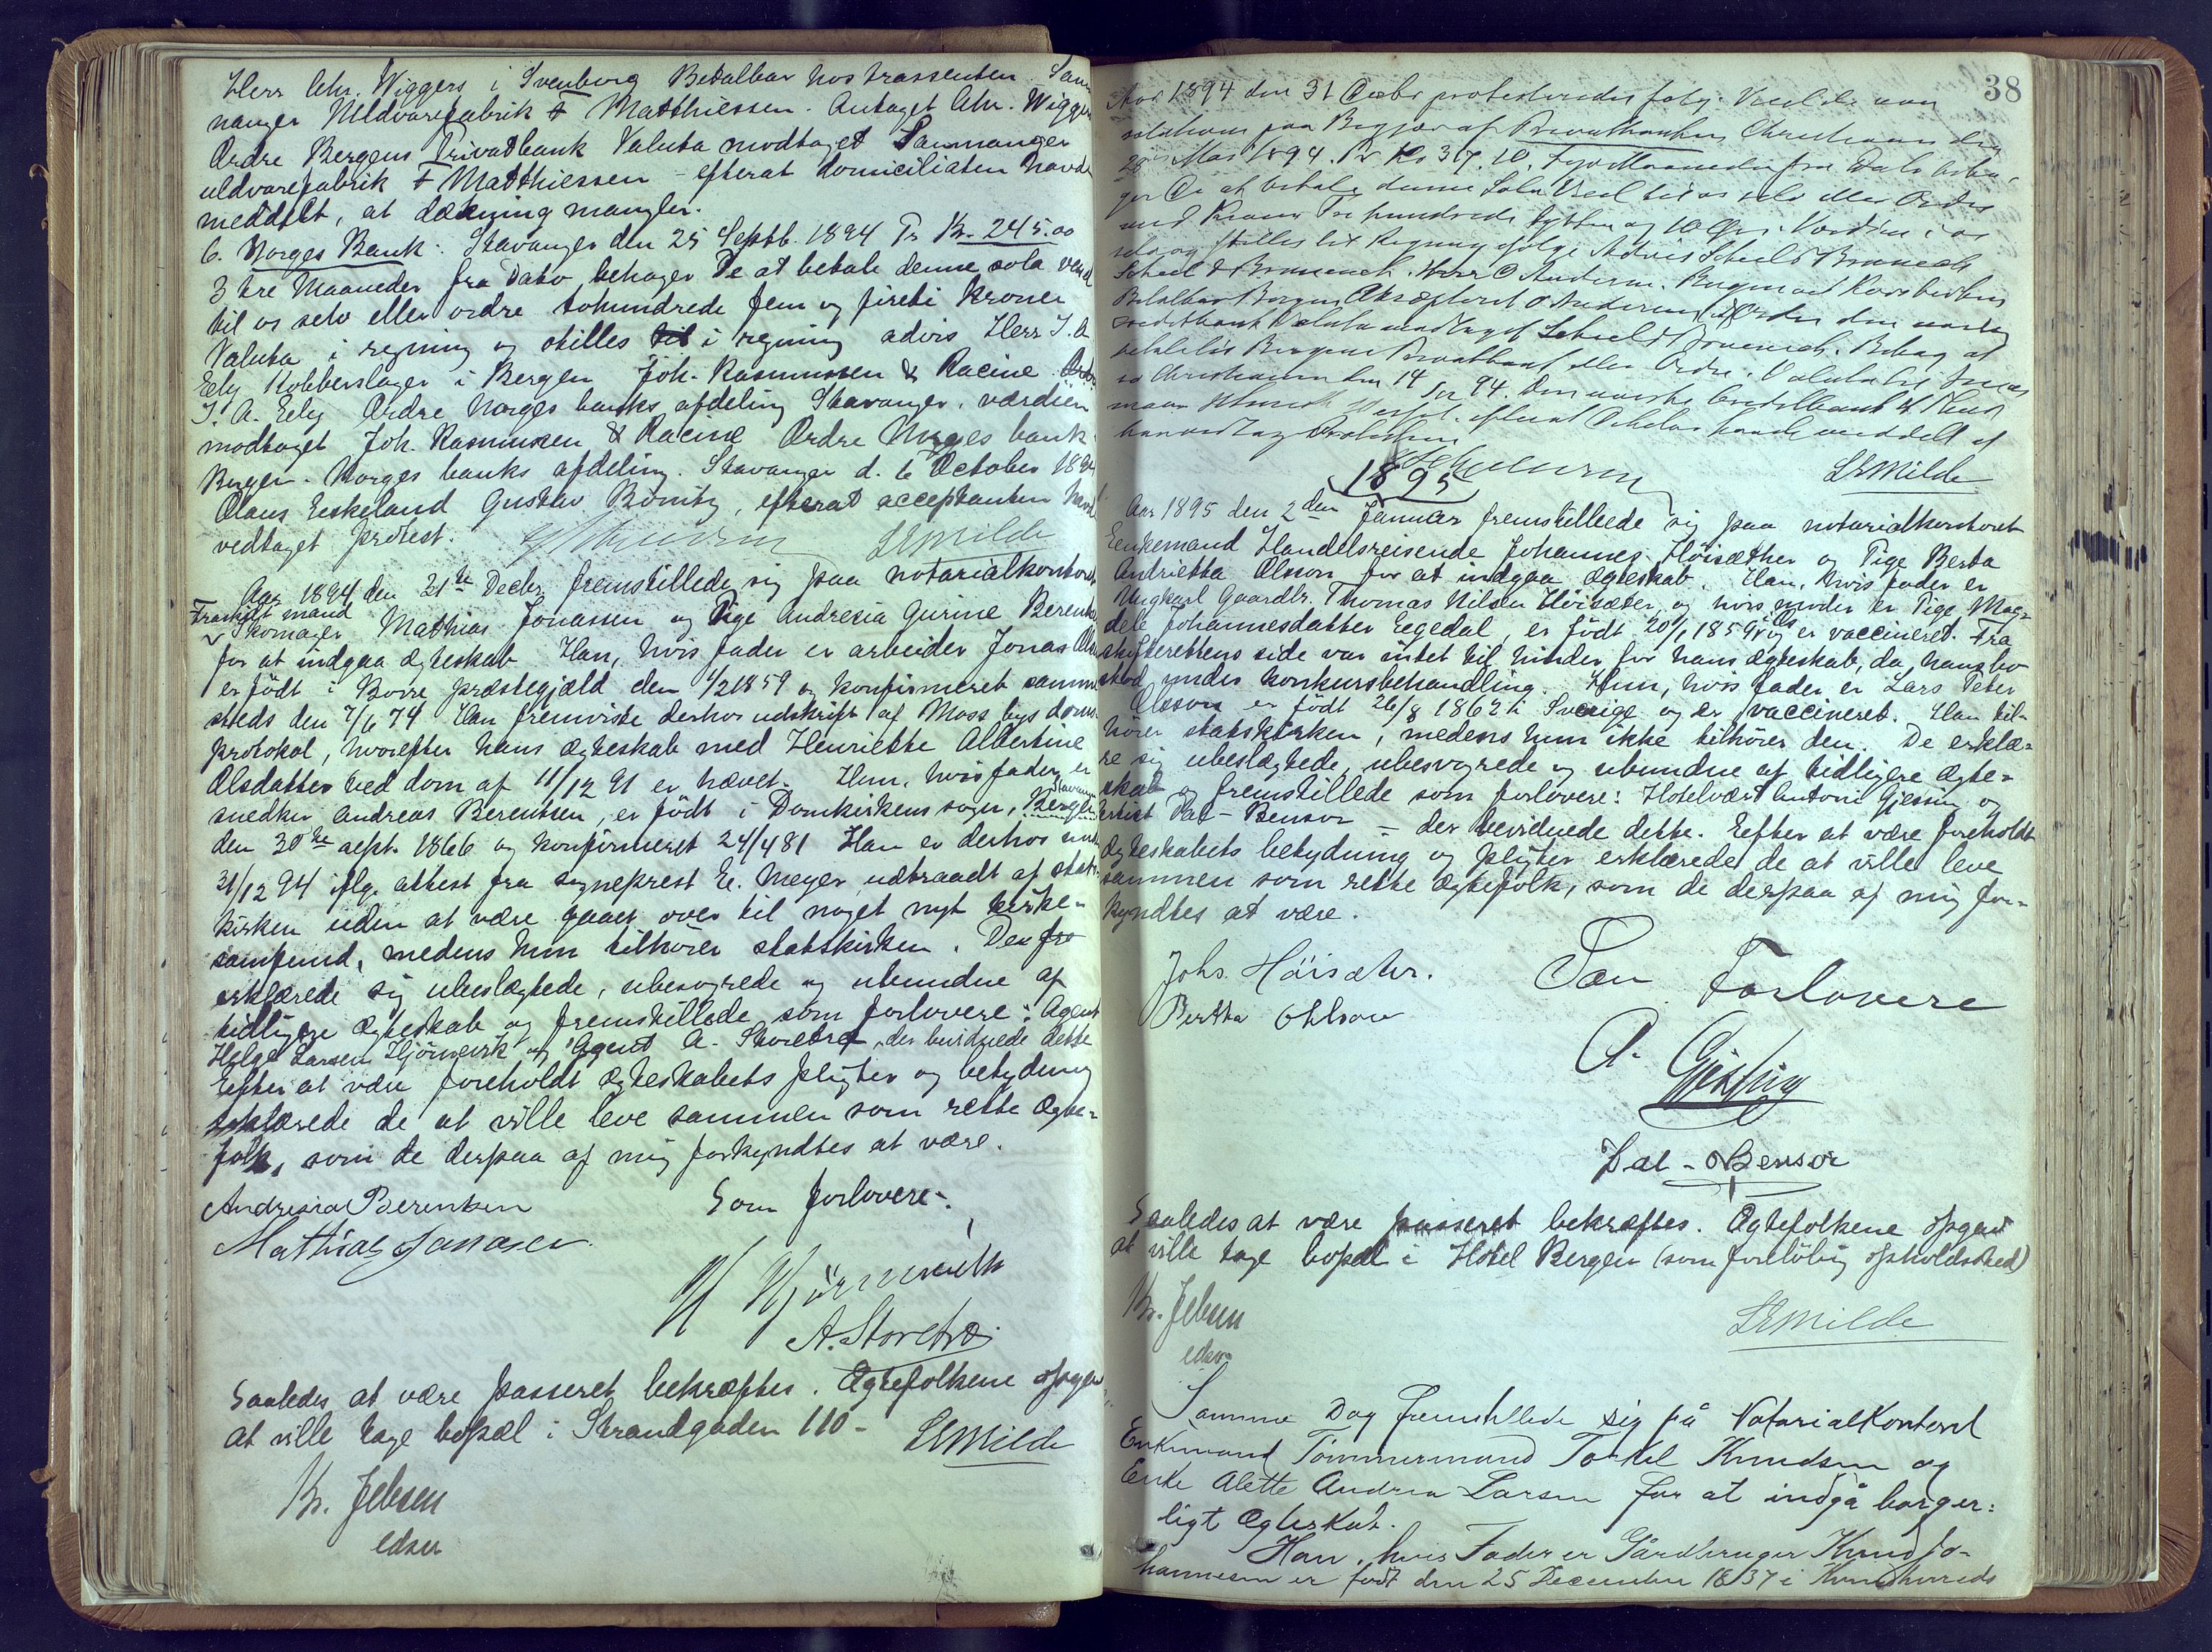 Herr Chr. Wiggers i Svenborg Betalbar hos trassenten. Sam
nanger Uldvarefabrik & Matthiessen. Antaget Chr. Wiggers
Ordre Bergens Privatbank Valuta modtaget Samnanger
uldvarefabrik & Matthiessen - efterat domiciliaten havde
meddelt, at dækning mangler.
6. Norges Bank: Stavanger den 25 Septb. 1894 Pr Kr. 245.00
3 tre Maaneder fra Dato behager De at betale denne sola vexel
til os selv eller ordre tohundrede fem og fireti Kroner
Valuta i regning og stilles til i regning advis Herr I. A
Eely Kobberslager i Bergen Joh. Rasmussen & Racine.
I. A. Eely Ordre Norges banks afdeling Stavanger, værdien
modtaget Joh. Rasmussen & Racine Ordre Norges bank
Bergen. Norges banks afdeling. Stavanger d. 6 October 1894
Olaus Eeskeland Gustav Bönitz, efterat acceptanten havde
vedtaget protest.
LEMilde
Aar 1894 den 21de Decbr. fremstillede sig paa notarialkontoret
Fraskilt mand
Mathias Jonassen og Pige Andresia Gurine Berentsen
for at indgaa ægteskab Han, hvis fader er arbeider Jonas
er født i Borre præstegjæld den 1/2 1859 og konfirmeret samme
steds den 7/6 74 Han fremviste derhos udskrift af Moss bys doms
protokol, hvorefter hans ægteskab med Henriette Albertine
Olsdatter ved dom af 11/12 91 er hævet. Hun, hvis fader er
snedker Andreas Berentsen, er født i Domkirkens sogn, Bergen
Stavanger
den 30te sept. 1866 og konfirmeret 24/4 81 Han er derhos
31/12 94 iflg. attest fra sogneprest E. Meyer udtraadt af stats
kirken uden at være gaaet over til noget nyt kirke-
samfund, medens hun tilhører statskirken. De
erklærede sig ubeslægtede, ubesvogrede og ubundne af
tidligere ægteskab og fremstillede som forlovere: Agent
Helge Larsen Hjörnevik og Agent A. Storetræ, der bevidnede dette
Eefter at være foreholdt ægteskabets pligter og betydning
erklærede de at ville leve sammen som rette ægte-
folk, som de derpaa af mig forkyndtes at være.
Andresia Berentsen Som forlovere:
Mathias Jonasen
H Hjörnevik
A. Storetræ
Saaledes at være passeret bekræftes. Ægtefolkene opgav
at ville tage bopæl i Strandgaden 110 - LEMilde
Kr. Jebsen
edsv
38
Aar 1894 den 31 Decbr protesteredes følg. Vexel
paa Begjær af Privatbanken Christiania den
20 Mai 1894. Pr Kr 317.10. Fire Maaneder fra Dato beha-
ger De at betale denne Sola Vexel til os selv eller Ordre
med Kroner Tre hundrede sytten og 10 Øre. Værdien i os
selv og stilles til Regning ifølge Advis Scheel & Brunech
Scheel & Brunech. Herr O Andersen. Bergen
Betalbar Bergen Akcepteret O Andersen. Ordre den norske
creditbank Valuta modtaget Scheel & Brunech. Behag at
betale til Bergens Privatbank eller Ordre. Valuta
Christiania den 14 94. Den norske Creditbank
havde meddelt at
LEMilde
1895
Aar 1895 den 2den Januar fremstillede sig paa notarialkontoret
Eenkemand Handelsreisende Johannes Høisæther og Pige Berta
Andrietta Olsson for at indgaa ægteskab. Han, hvis fader er
Ungkarl Gaardbr. Thomas Nilsen Höisæter, og hvis moder er Pige Mag-
dele Johannesdatter Eegedal, er født 20/1 1859 og er vaccineret. Fra
skifterettens side var intet til hinder for hans ægteskab, da hans bo
stod under konkursbehandling. Hun, hvis fader er Lars Peter
Olsson er født 26/8 1862 i Sverige og er vaccineret. Han til-
hører statskirken, medens hun ikke tilhører den. De erklæ-
re sig ubeslægtede, ubesvogrede og ubundne af tidligere ægte-
skab og fremstillede som forlovere: Hotelvært Antoni Gjessing og
Artist Dal-Bensor - der bevidnede dette. Eefter at være foreholdt
ægteskabets betydning og pligter erklærede de at ville leve
sammen som rette ægtefolk, som de derpaa af mig for-
kyndtes at være.
Johs. Höisæter. Som Forlovere
Bertha Ohlson
A. Gjessing
Dal-Bensor
Saaledes at være passeret bekræftes. Ægtefolkene opgav
at ville tage bopæl i Hotel Bergen (som foreløbig opholdssted)
Kr. Jebsen LEMilde
edsv
Samme Dag fremstillede sig på NotarialKontoret
Enkemand Tømmermand Torkel Knudsen og
Enke Alette Andrea Larsen for at indgå borger:
ligt Ægteskab.
Han, hvis Fader er Gårdbruger Knud Jo-
hannesen er født den 25 December 1837 i